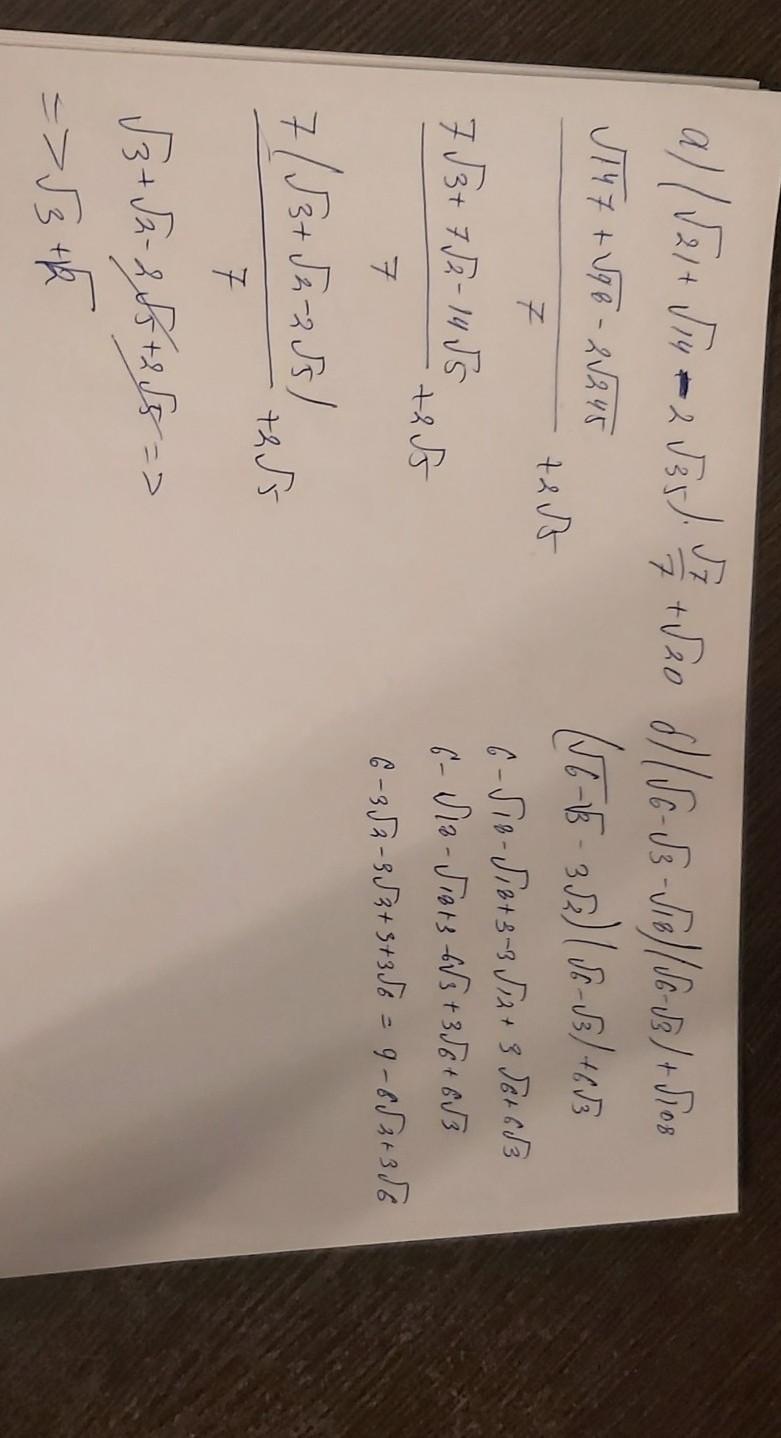 а) (√21 + √14 - 2√35) · √7/7 + √20
√147 + √98 - 2√245
7
+2√5
7√3 + 7√2 - 14√5
7
+2√5
7(√3 + √2 - 2√5)
7
+2√5
√3 + √2 - 2√5 + 2√5 =>
=> √3 + √2
б) (√6 - √3 - √18)(√6 - √3) + √108
(√6 - √3 - 3√2)(√6 - √3) + 6√3
6 - √18 - √18 + 3 - 3√12 + 3√6 + 6√3
6 - √18 - √18 + 3 - 6√3 + 3√6 + 6√3
6 - 3√2 - 3√2 + 3 + 3√6 = 9 - 6√2 + 3√6